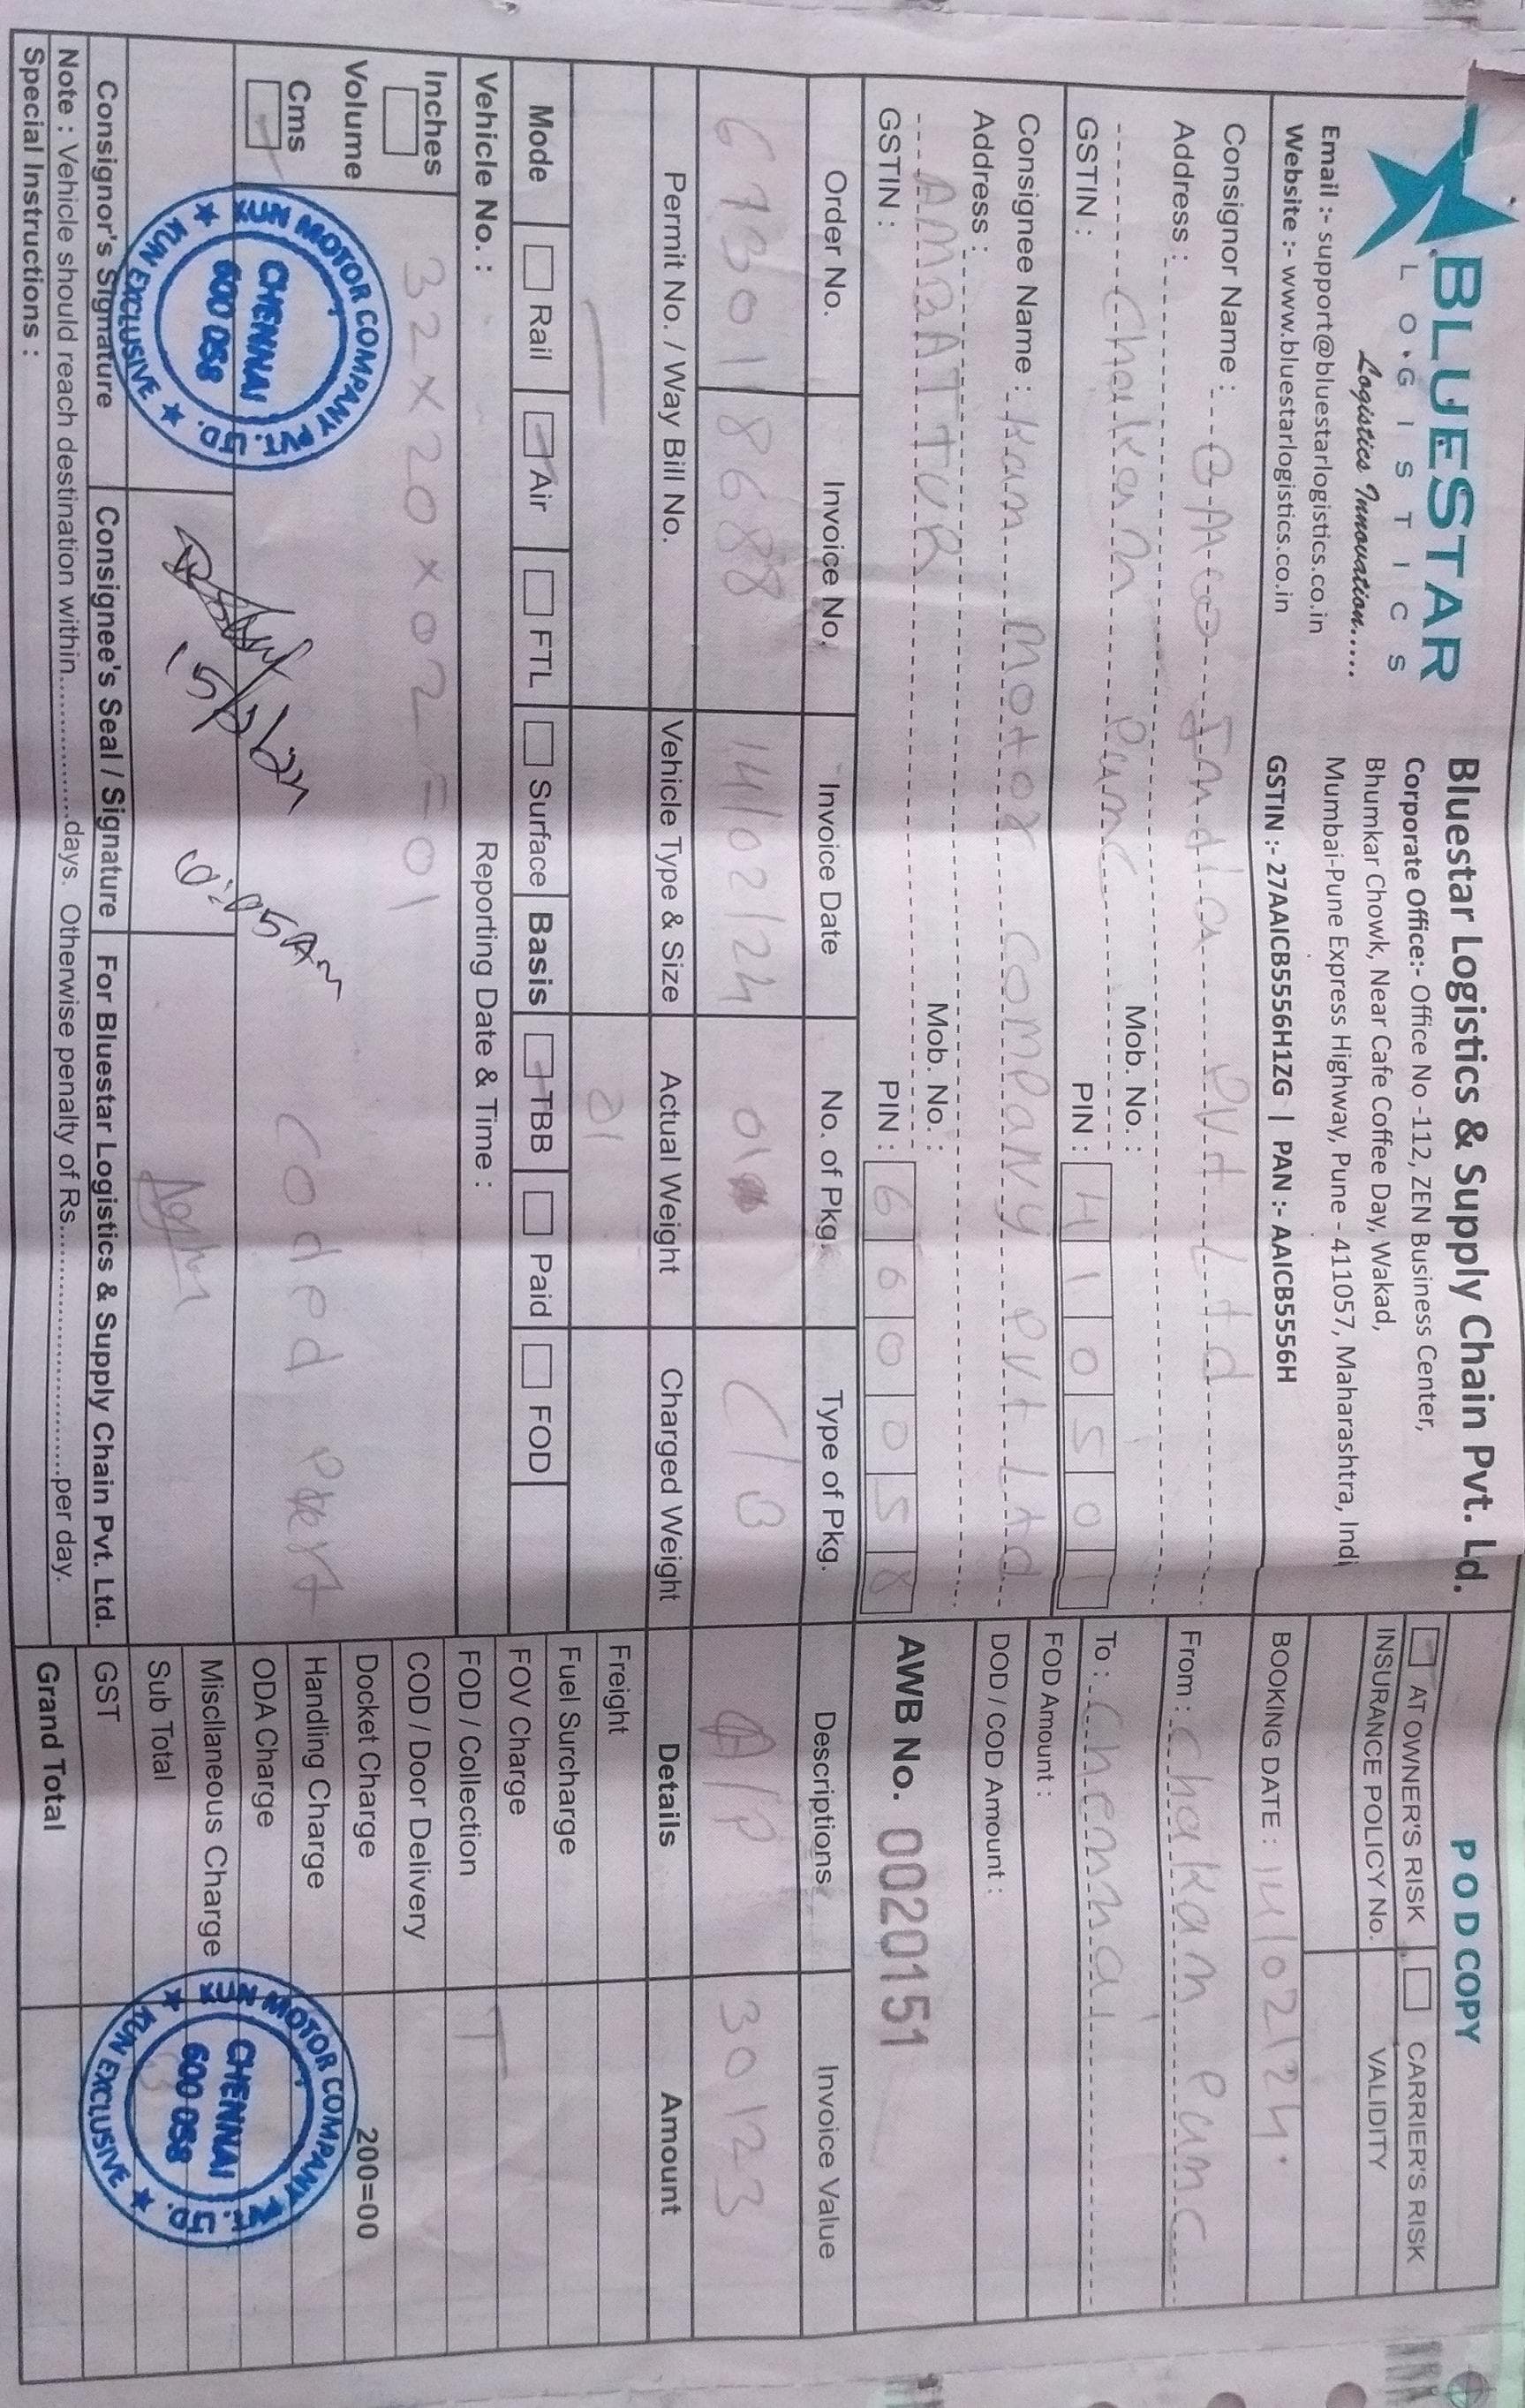 BLUESTAR
LOGISTICS
Logistics Innovation.....
Email :- support@bluestarlogistics.co.in
Website :- www.bluestarlogistics.co.in
Bluestar Logistics & Supply Chain Pvt. Ld.
Corporate Office:- Office No -112, ZEN Business Center,
Bhumkar Chowk, Near Cafe Coffee Day, Wakad,
Mumbai-Pune Express Highway, Pune - 411057, Maharashtra, Indi
GSTIN :- 27AAICB5556H1ZG | PAN :- AAICB5556H
POD COPY
AT OWNER'S RISK CARRIER'S RISK
INSURANCE POLICY No. VALIDITY
BOOKING DATE : 14/02/24.
From : Chakan Pune
To : Chennai
FOD Amount :
DOD / COD Amount :
AWB No. 0020151
Consignor Name : India Pvt Ltd
Address :
Chakan Pune Mob. No. :
GSTIN : PIN : 410501
Consignee Name : Kun Motor Company Pvt Ltd
Address :
AMBATTUR Mob. No. :
GSTIN : PIN : 660058
Order No. Invoice No. Invoice Date No. of Pkg. Type of Pkg. Descriptions Invoice Value
673018688 14/02/24 01 C/B A/P 30123
Permit No. / Way Bill No. Vehicle Type & Size Actual Weight Charged Weight Details Amount
— 01
Freight
Fuel Surcharge
FOV Charge
FOD / Collection T
COD / Door Delivery
Docket Charge 200=00
Handling Charge
ODA Charge
Miscllaneous Charge
Sub Total
GST
Grand Total
Mode Rail Air FTL Surface Basis TBB Paid FOD
Vehicle No. : Reporting Date & Time :
Inches 32×20×02=01
Volume
Cms
Coded
KUN MOTOR COMPANY PVT. LTD.
CHENNAI
600 058
★ KUN EXCLUSIVE ★
KUN MOTOR COMPANY PVT. LTD.
CHENNAI
600 058
★ KUN EXCLUSIVE ★
Consignor's Signature Consignee's Seal / Signature For Bluestar Logistics & Supply Chain Pvt. Ltd.
Note : Vehicle should reach destination within.................days. Otherwise penalty of Rs..............................per day.
Special Instructions :